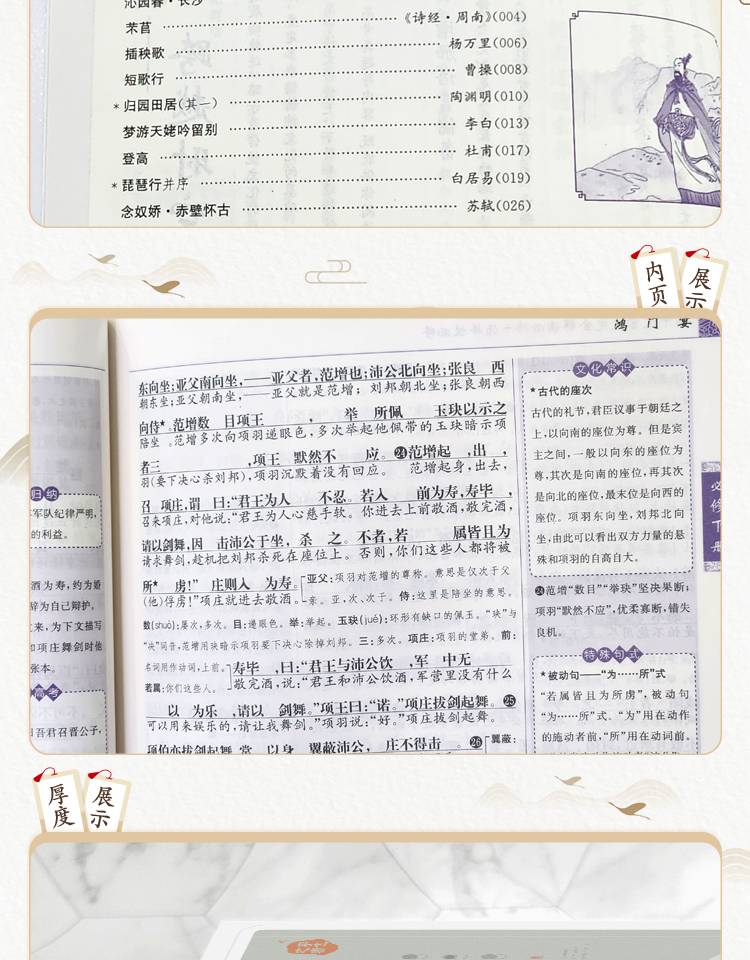 沁园春·长沙
芣苢 《诗经·周南》(004)
插秧歌 杨万里(006)
短歌行 曹操(008)
*归园田居(其一) 陶渊明(010)
梦游天姥吟留别 李白(013)
登高 杜甫(017)
*琵琶行并序 白居易(019)
念奴娇·赤壁怀古 苏轼(026)
内页
展示
鸿门宴
东向坐;亚父南向坐,——亚父者,范增也;沛公北向坐;张良 西
朝东坐;亚父朝南坐,——亚父就是范增;刘邦朝北坐;张良朝西
向侍*。范增数 目项王 , 举 所佩 玉玦以示之
陪坐。范增多次向项羽递眼色,多次举起他佩带的玉玦暗示项
者三 ,项王 默然不 应。㉔范增起 ,出 ,
羽(要下决心杀刘邦),项羽沉默着没有回应。 范增起身,出去,
召 项庄,谓 曰:“君王为人 不忍。若入 前为寿,寿毕 ,
召来项庄,对他说:“君王为人心慈手软。你进去上前敬酒,敬完酒,
请以剑舞,因 击沛公于坐,杀 之。不者,若 属皆且为
请求舞剑,趁机把刘邦杀死在座位上。否则,你们这些人都将被
所* 虏!” 庄则入 为寿。
(他)俘虏!”项庄就进去敬酒。
亚父:项羽对范增的尊称。意思是仅次于父
亲。亚,次、次于。侍:这里是陪坐的意思。
数(shuò):屡次,多次。目:递眼色。举:举起。玉玦(jué):环形有缺口的佩玉。“玦”与
“决”同音,范增用玦暗示项羽要下决心除掉刘邦。三:多次。项庄:项羽的堂弟。前:
名词用作动词,上前。
若属:你们这些人。
寿毕 ,曰:“君王与沛公饮 ,军 中无
敬完酒,说:“君王和沛公饮酒,军营里没有什么
以 为乐 ,请以 剑舞。”项王曰:“诺。”项庄拔剑起舞。㉕
可以用来娱乐的,请让我舞剑。”项羽说:“好。”项庄拔剑起舞。
项伯亦拔剑起舞,常 以身 翼蔽沛公, 庄不得击 。㉖
翼蔽:
文化常识
★古代的座次
古代的礼节,君臣议事于朝廷之
上,以向南的座位为尊。但是宾
主之间,一般以向东的座位为
尊,其次是向南的座位,再其次
是向北的座位,最末位是向西的
座位。项羽东向坐,刘邦北向
坐,由此可以看出双方力量的悬
殊和项羽的自高自大。
㉔范增“数目”“举玦”坚决果断;
项羽“默然不应”,优柔寡断,错失
良机。
特殊句式
★被动句——“为……所”式
“若属皆且为所虏”,被动句
“为……所”式。“为”用在动作
的施动者前,“所”用在动词前。
必修下册
归纳
军队纪律严明,
的利益。
酒为寿,约为婚
辞为自己辩护。
来,为下文描写
和项庄舞剑时他
张本。
高考
日吾君召晋公子,
厚度
展示